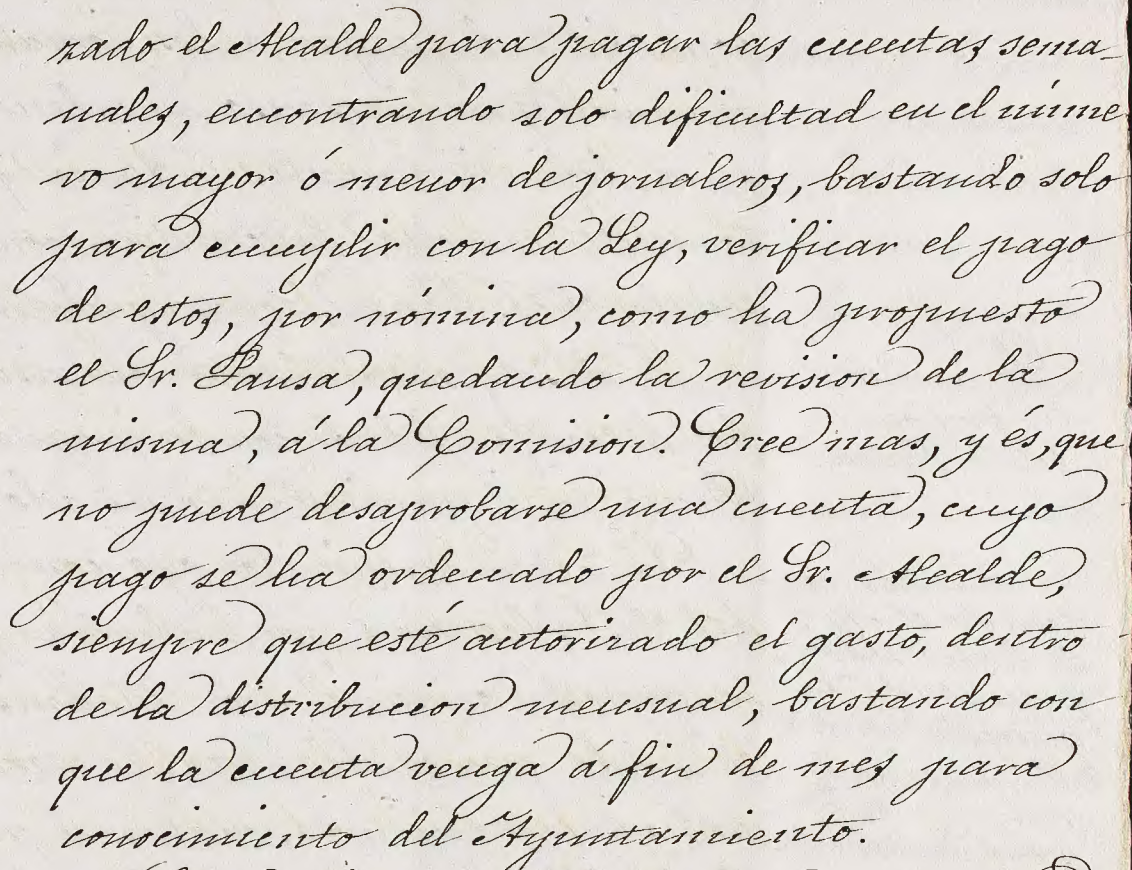 zado el Alcalde para pagar las cuentas sema-
nales, encontrando solo dificultad en el núme
ro mayor ó menor de jornaleros, bastando solo
para cumplir con la Ley, verificar el pago
de estos, por nómina, como ha propuesto
el Sr. Sausa, quedando la revision de la
misma, á la Comision. Cree mas, y és, que
no puede desaprobarse una cuenta, cuyo
pago se ha ordenado por el Sr. Alcalde,
siempre que esté autorizado el gasto, dentro
de la distribucion mensual, bastando con
que la cuenta venga á fin de mes para
conocimiento del Ayuntamiento.